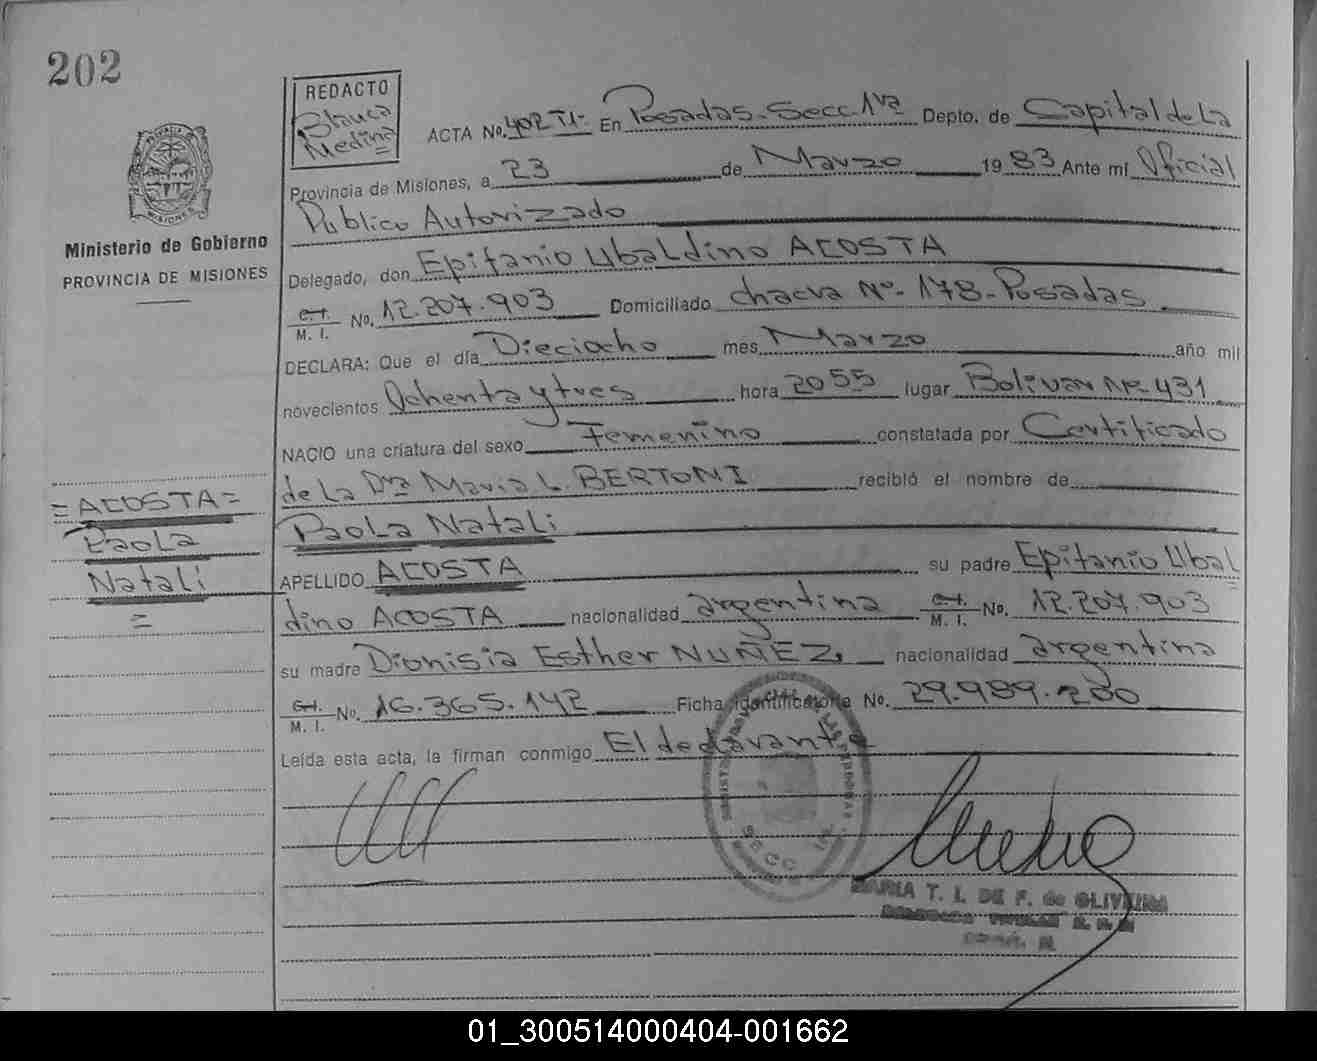 202
REDACTO
Blanca
Medina
ACTA No. 402 TI- En Posadas-Secc. 1ra Depto. de Capital de La
Provincia de Misiones, a 23 de Marzo 1983 Ante mí Oficial
Publico Autorizado
Ministerio de Gobierno
PROVINCIA DE MISIONES
MISIONES
Delegado, don Epifanio Ubaldino ACOSTA
C.I. M. I. No. 12.207.903 Domiciliado chacra Nº-178-Posadas
DECLARA: Que el día Dieciocho mes Marzo año mil
novecientos Ochenta y tres hora 2055 lugar Bolivar Nº-431
NACIO una criatura del sexo Femenino constatada por Certificado
de La Dra Maria L. BERTONI recibió el nombre de
Paola Natali
=ACOSTA=
Paola
Natali
=
APELLIDO ACOSTA su padre Epifanio Ubal
dino ACOSTA nacionalidad argentina C.I. M. I. No. 12.207.903
su madre Dionisia Esther NUÑEZ, nacionalidad argentina
C.I. M. I. No. 16.365.142 Ficha identificatoria No. 29.989.200
Leída esta acta, la firman conmigo El declarante
SECC. 1ra
MARIA T. I. DE F. de OLIVEIRA
01_300514000404-001662